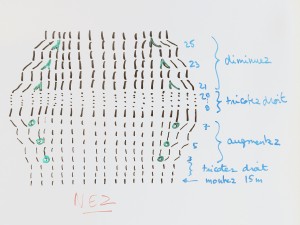 25
23
diminuez
21
20
tricotez droit
8
7
augmentez
5
3
tricotez droit
montez 15 m
NEZ